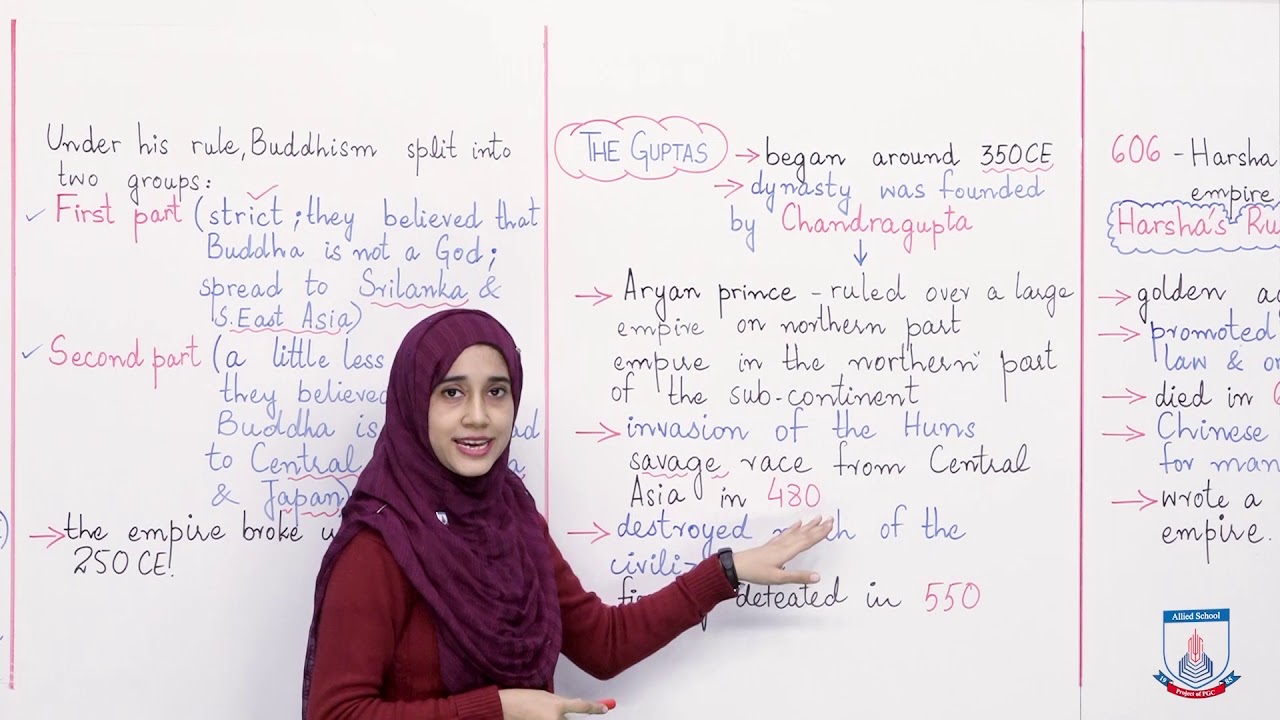 Under his rule, Buddhism split into
two groups:
First part (strict; they believed that
Buddha is not a God;
spread to Srilanka &
S. East Asia)
Second part (a little less
they believed
Buddha is
to Central
& Japan)
→ the empire broke
250 CE!
THE GUPTAS → began around 350CE
→ dynasty was founded
by Chandragupta
→ Aryan prince - ruled over a large
empire on northern part
empire in the northern part
of the sub-continent
→ invasion of the Huns
savage race from Central
Asia in 480
→ destroyed of the
deteated in 550
606 - Harsha
empire
Harsha's
→ golden
→ promoted
law &
→ died in
→ Chinese
for
→ wrote a
empire.
Allied School
1985
Project of PGC